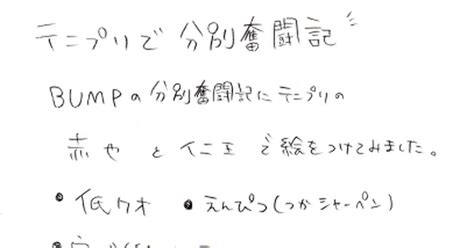 テニプリで分別奮闘記
BUMPの分別奮闘記にテニプリの
赤也と仁王で絵をつけてみました。
•低クオ •えんぴつ(つかシャーペン)